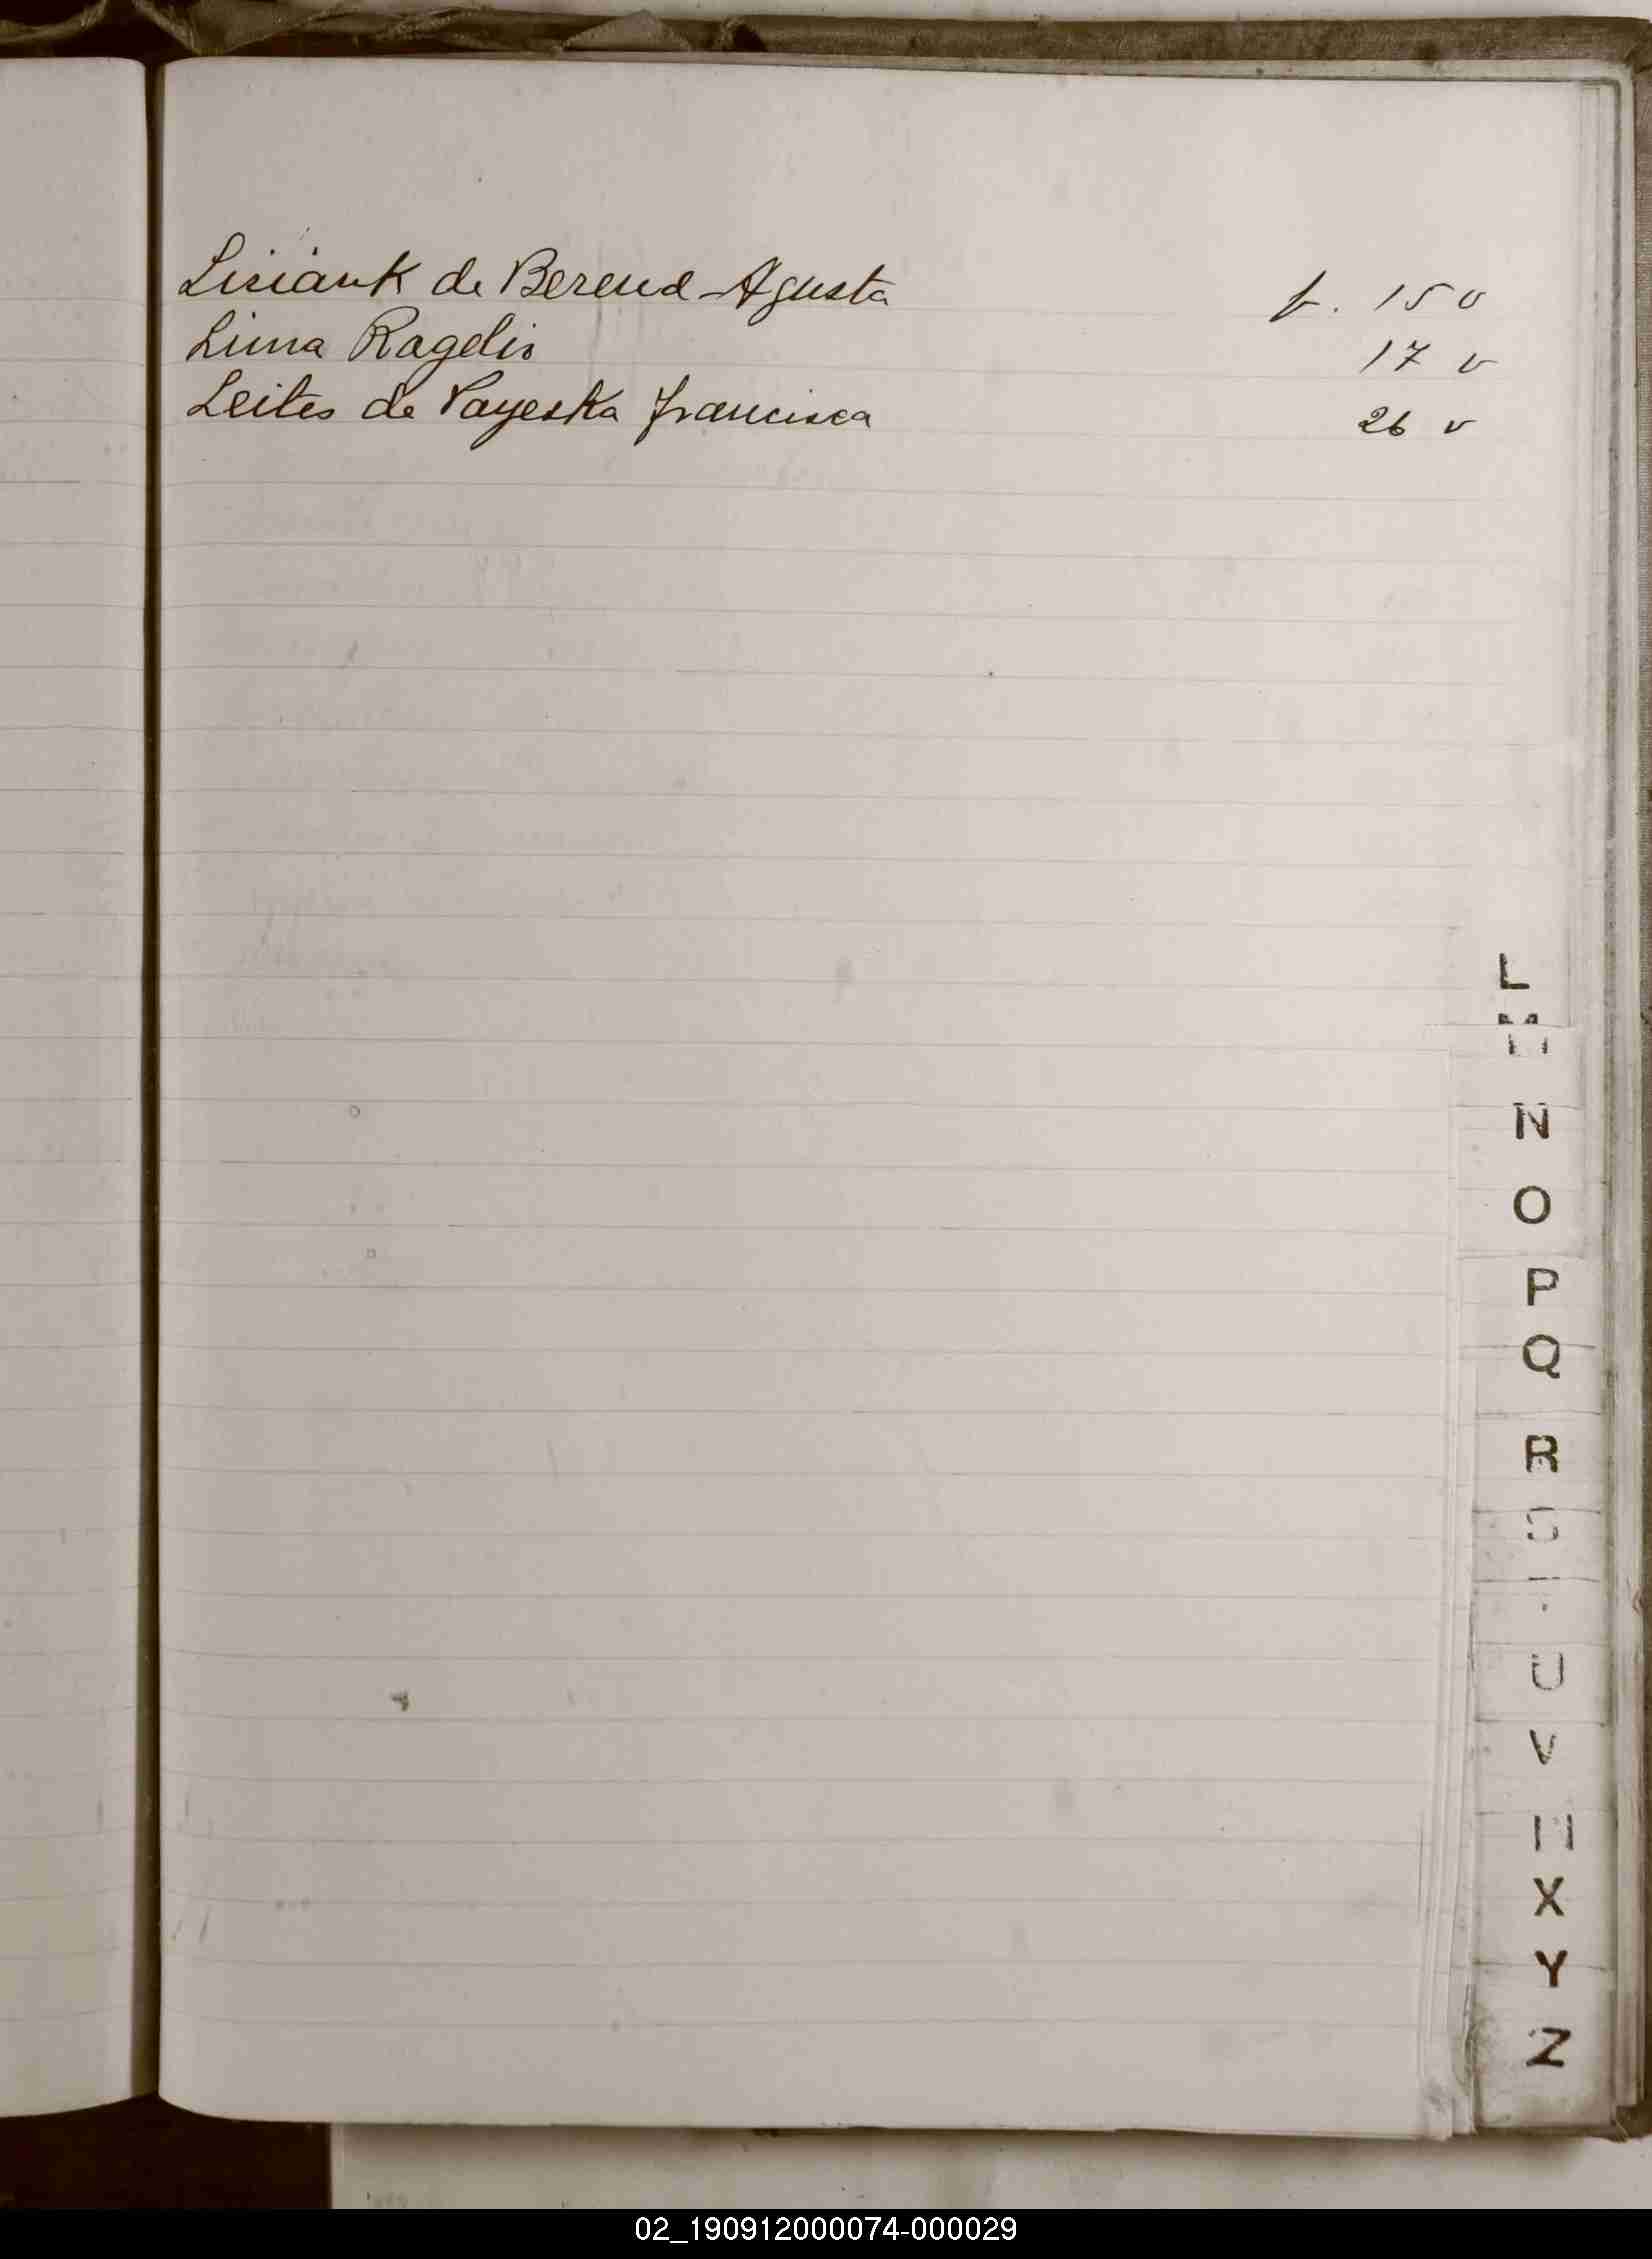 Lisiank de Berend-Agusta f. 15 v
Lima Rogelio 17 v
Leites de Payeska Francisca 26 v
L
M
N
O
P
Q
R
S
T
U
V
X
Y
Z
02_190912000074-000029